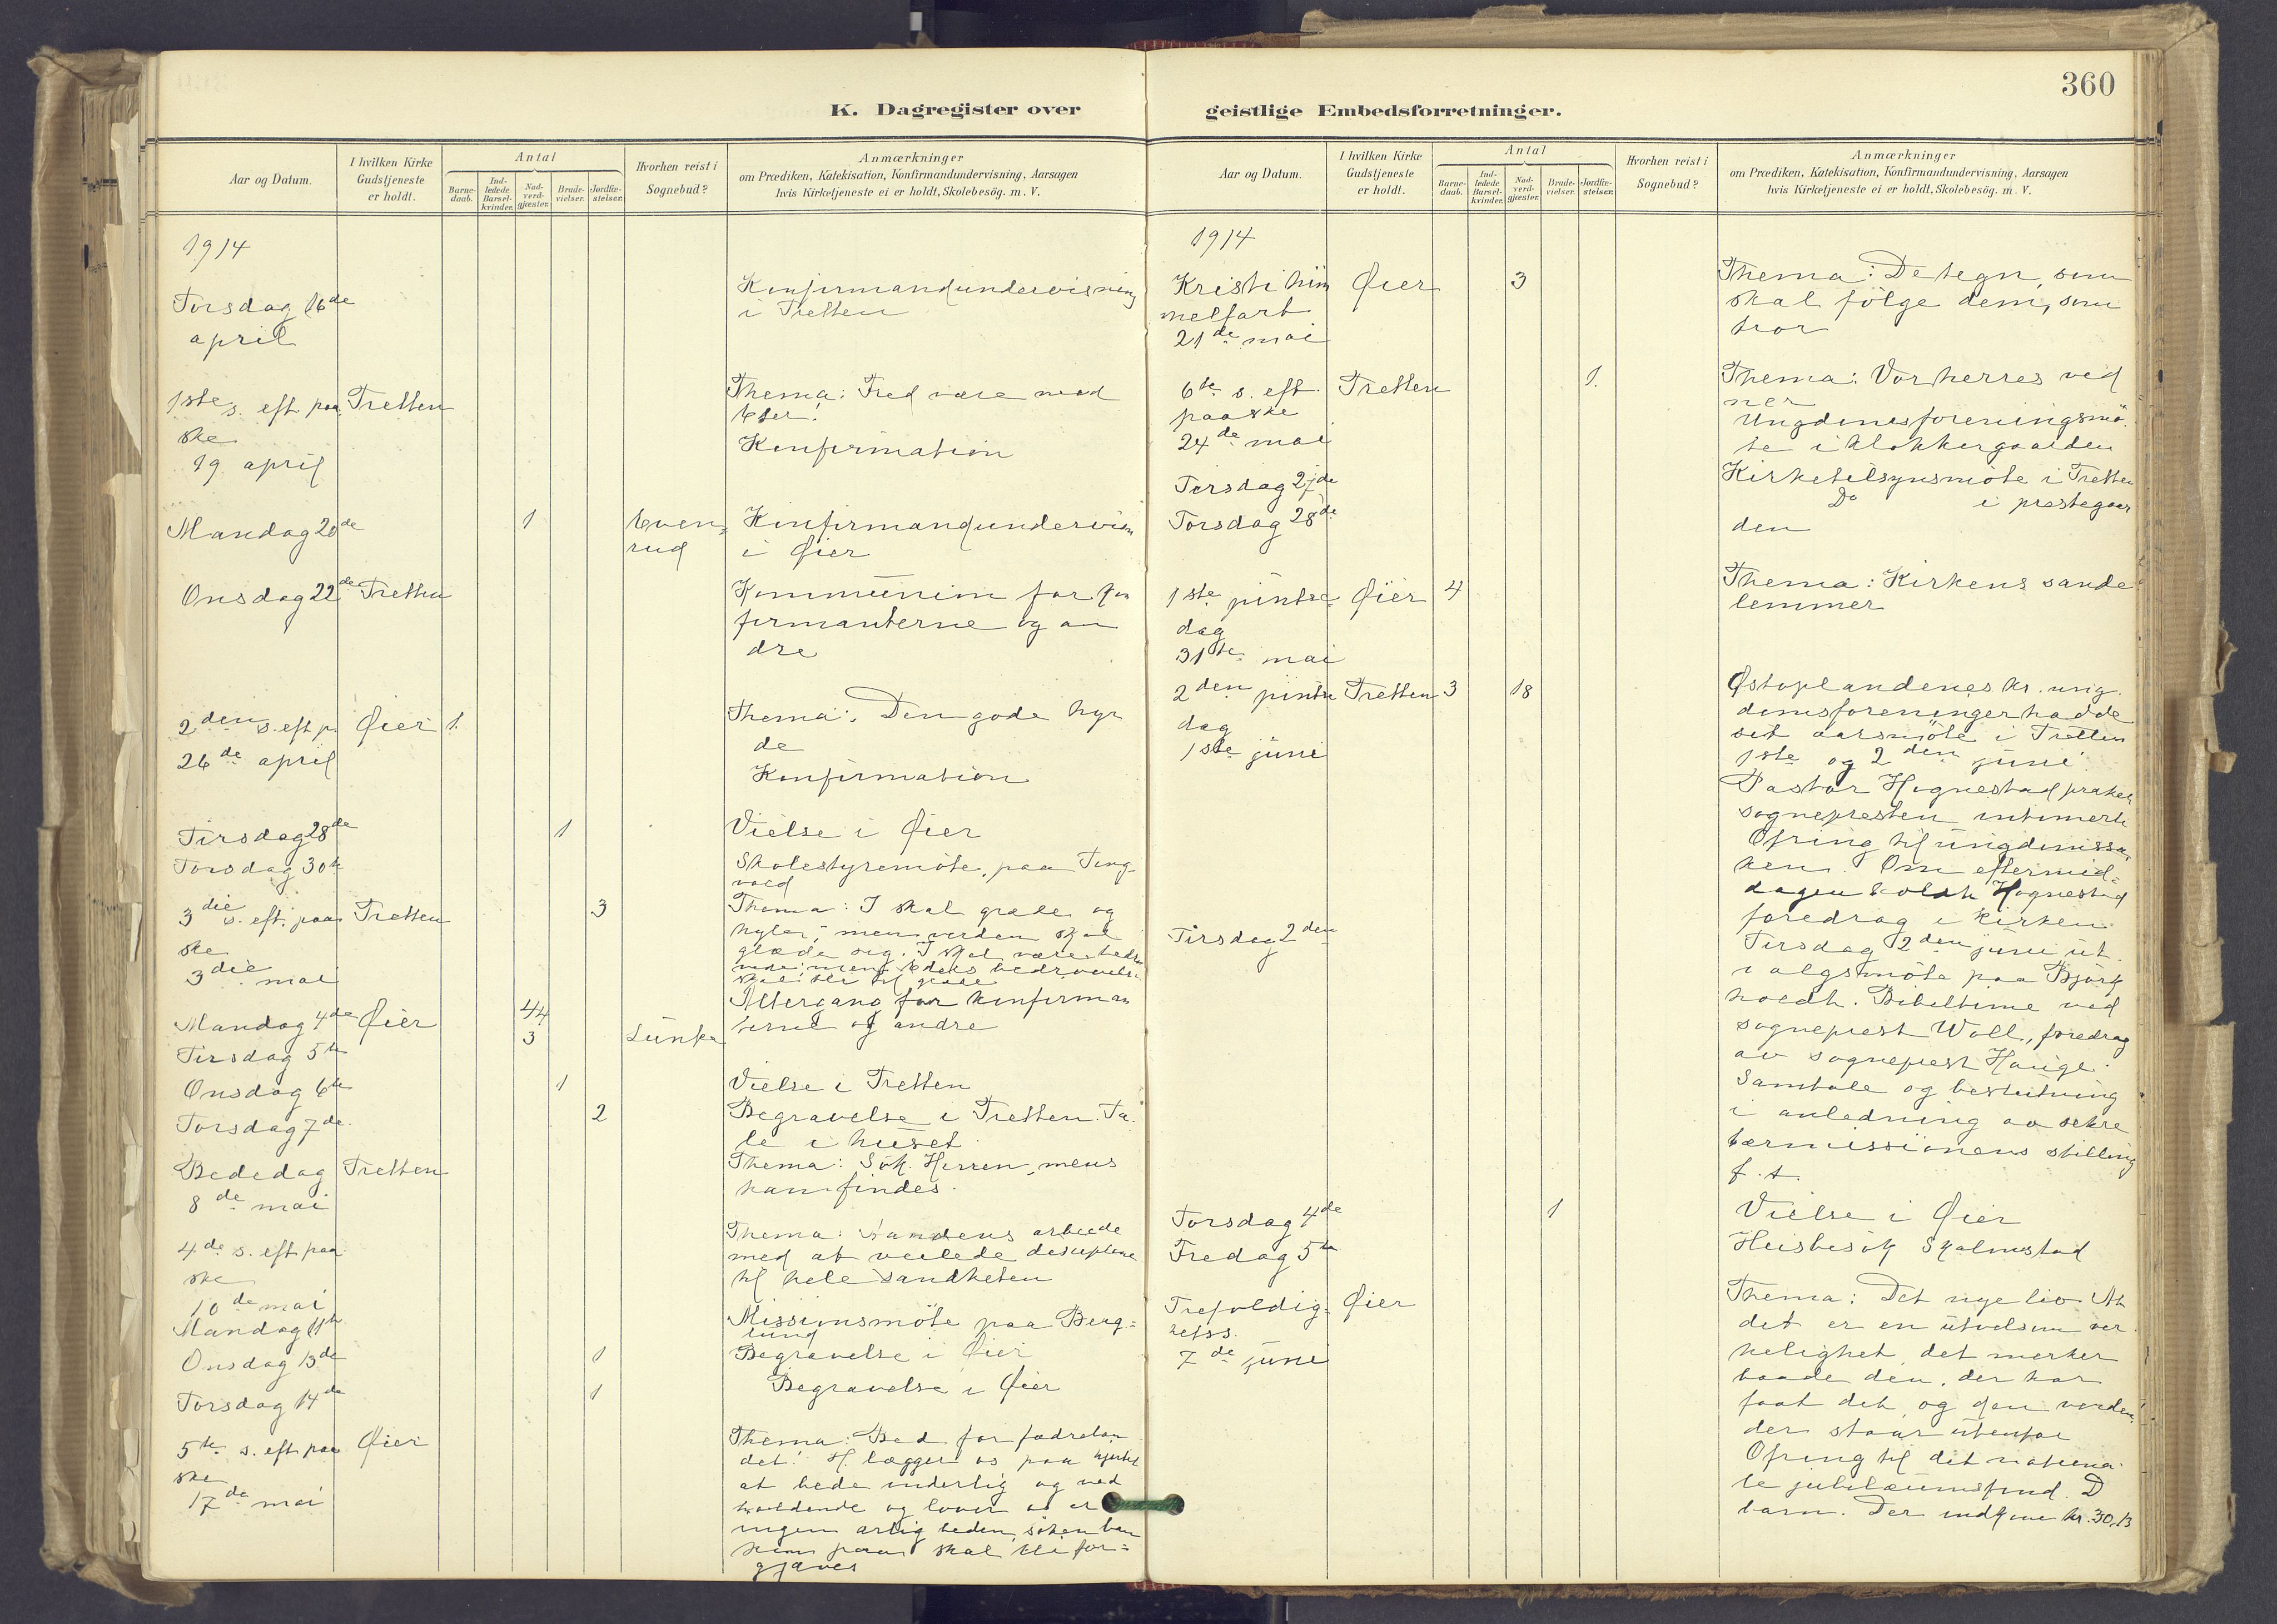 360
K. Dagregister over
geistlige Embedsforretninger.
Aar og Datum.
I hvilken Kirke Gudstjeneste er holdt.
Antal
Barne-daab.
Ind-ledede Barsel-kvinder.
Nad-verd-gjæster.
Brude-vielser.
Jordfæ-stelser.
Hvorhen reist i Sognebud?
Anmærkninger
om Prædiken, Katekisation, Konfirmandundervisning, Aarsagen
hvis Kirketjeneste ei er holdt, Skolebesög. m. V.
1914
Torsdag 16de Konfirmandundervisning
april i Tretten
1ste s. eft. paa Tretten Thema: Fred være med
ske Eder!
19 april Konfirmation
Mandag 20de 1 Even= Konfirmandundervisn
rud i Øier
Onsdag 22de Tretten Kommunion for kon
firmanterne og an
dre
2den s. eft p. Øier 1. Thema: Den gode hyr
26de april de
Konfirmation
Tirsdag 28de 1 Vielse i Øier
Torsdag 30te Skolestyremöte paa Ting
vold
3die s. eft. paa Tretten 3 Thema: I skal græde og
ske hyler, men verden skal
3die mai glæde sig. I skal være bedrö
vede, men Eders bedrövelse
skal bli til glæde
Mandag 4de Øier 44 Altergang for konfirman
Tirsdag 5te 3 Lunke terne og andre
Onsdag 6te 1 Vielse i Tretten
Torsdag 7de 2 Begravelse i Tretten. Ta
le i huset
Bededag Tretten Thema: Sök Herren, mens
8de mai han findes.
4de s. eft paa Thema: Aandens arbeide
ske med at veilede disciplene
10de mai til hele sandheten
Mandag 11te Missionsmöte paa Berg=
lund
Onsdag 13de 1 Begravelse i Øier
Torsdag 14de 1 Begravelse i Øier
5te s. eft paa Øier Thema: Bed for fædrelan
ske det! lægger os paa hjertet
17de mai at bede inderlig og ved
holdende og lover os at
ingen ærlig beden, söken ban
ken paa skal bli for=
gjæves
Aar og Datum.
I hvilken Kirke Gudstjeneste er holdt.
Antal
Barne-daab.
Ind-ledede Barsel-kvinder.
Nad-verd-gjæster.
Brude-vielser.
Jordfæ-stelser.
Hvorhen reist i Sognebud?
Anmærkninger
om Prædiken, Katekisation, Konfirmandundervisning, Aarsagen
hvis Kirketjeneste ei er holdt, Skolebesög. m. V.
1914
Kristi him Øier 3 Thema: De tegn, som
melfart skal fölge dem, som
21de mai tror
6te s. eft. Tretten 1. Thema: Vorherres vid
paaske ner
24de mai Ungdomsforeningsmö
te i klokkergaarden
Tirsdag 27de Kirketilsynsmöte i Tretten
Torsdag 28de Do i prestegaar
den
1ste pintse Øier 4 Thema: Kirkens sande
dag lemmer
31te mai
2den pintse Tretten 3 18 Østoplandenes kr. ung
dag domsforeninger hadde
1ste juni sit aarsmöte i Tretten
1ste og 2den juni.
Pastor Hognestad præket
sognepresten intimerte
Ofring til ungdomssa
ken. Om eftermid=
dagen holdt Hognestad
foredrag i kirken
Tirsdag 2den Tirsdag 2den juni ut
valgsmöte paa Björk
holdt. Bibeltime ved
sogneprest Woll, foredrag
av sogneprest Hauge.
Samtale og beslutning
i anledning av sekre
tærmissionens stilling
f. t.
Torsdag 4de 1 Vielse i Øier
Fredag 5te Husbesök Skalmstad
Trefoldig= Øier Thema: Det nye liv. At
hetss. det er en utvolsom vir
7de juni kelighet, det merker
baade den, der har
faat det, og den verden,
der staar utenfor
Ofring til det nationa
le jubilæumsfond.
barn. Der indkom kr. 30,13